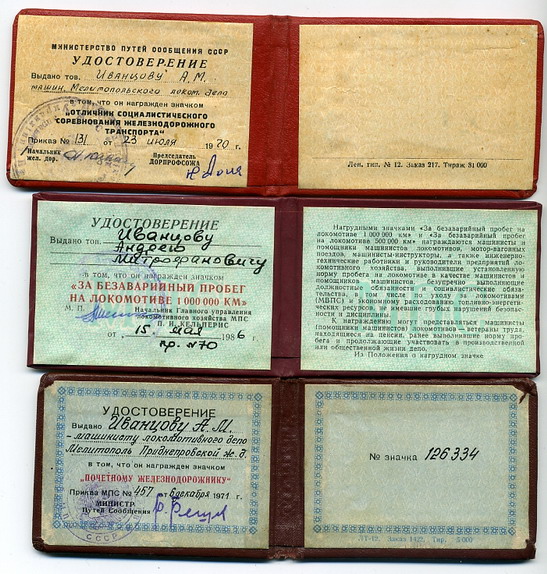 МИНИСТЕРСТВО ПУТЕЙ СООБЩЕНИЯ СССР
УДОСТОВЕРЕНИЕ
Выдано тов. Иванцову А.М.
машин. Мелитопольского локом. депо
в том, что он награжден значком
"ОТЛИЧНИК СОЦИАЛИСТИЧЕСКОГО
СОРЕВНОВАНИЯ ЖЕЛЕЗНОДОРОЖНОГО
ТРАНСПОРТА"
Приказ № 131 от 23 июля 1970 г.
Начальник
жел. дор.
Председатель
ДОРПРОФСОЖА
Лен. тип. № 12. Заказ 217. Тираж 31 000
УДОСТОВЕРЕНИЕ
Выдано тов. Иванцову
Андрею
Митрофановичу
в том, что он награжден значком
"ЗА БЕЗАВАРИЙНЫЙ ПРОБЕГ
НА ЛОКОМОТИВЕ 1 000 000 КМ"
М. П.
Начальник Главного управления
локомотивного хозяйства МПС
П. И. КЕЛЬПЕРИС
от 15 мая 1986 г.
пр. №70
Нагрудными значками «За безаварийный пробег на
локомотиве 1 000 000 км» и «За безаварийный пробег
на локомотиве 500 000 км» награждаются машинисты и
помощники машинистов локомотивов, мотор-вагонных
поездов, машинисты-инструкторы, а также инженерно-
технические работники и руководители предприятий ло-
комотивного хозяйства, выполнившие установленную
норму пробега на локомотиве в качестве машинистов и
помощников машинистов, безупречно выполняющие
должностные обязанности и социалистические обяза-
тельства, в том числе по уходу за локомотивами
(МВПС) и экономному расходованию топливно-энергети-
ческих ресурсов, не имевшие грубых нарушений безопас-
ности и дисциплины.
К награждению могут представляться машинисты
(помощники машинистов) локомотивов — ветераны труда,
находящиеся на пенсии, ранее выполнившие норму пробе-
га и продолжающие участвовать в производственной
или общественной жизни депо.
Из Положения о нагрудном значке
УДОСТОВЕРЕНИЕ
Выдано Иванцову А.М.
- машинисту локомотивного депо
Мелитополь Приднепровской ж.д.
в том, что он награжден значком
"ПОЧЕТНОМУ ЖЕЛЕЗНОДОРОЖНИКУ"
Приказ МПС № 457 от 6 декабря 1971 г.
МИНИСТР
Путей Сообщения
СССР
№ значка 126334
ЛТ-12. Заказ 1422. Тир. 5 000